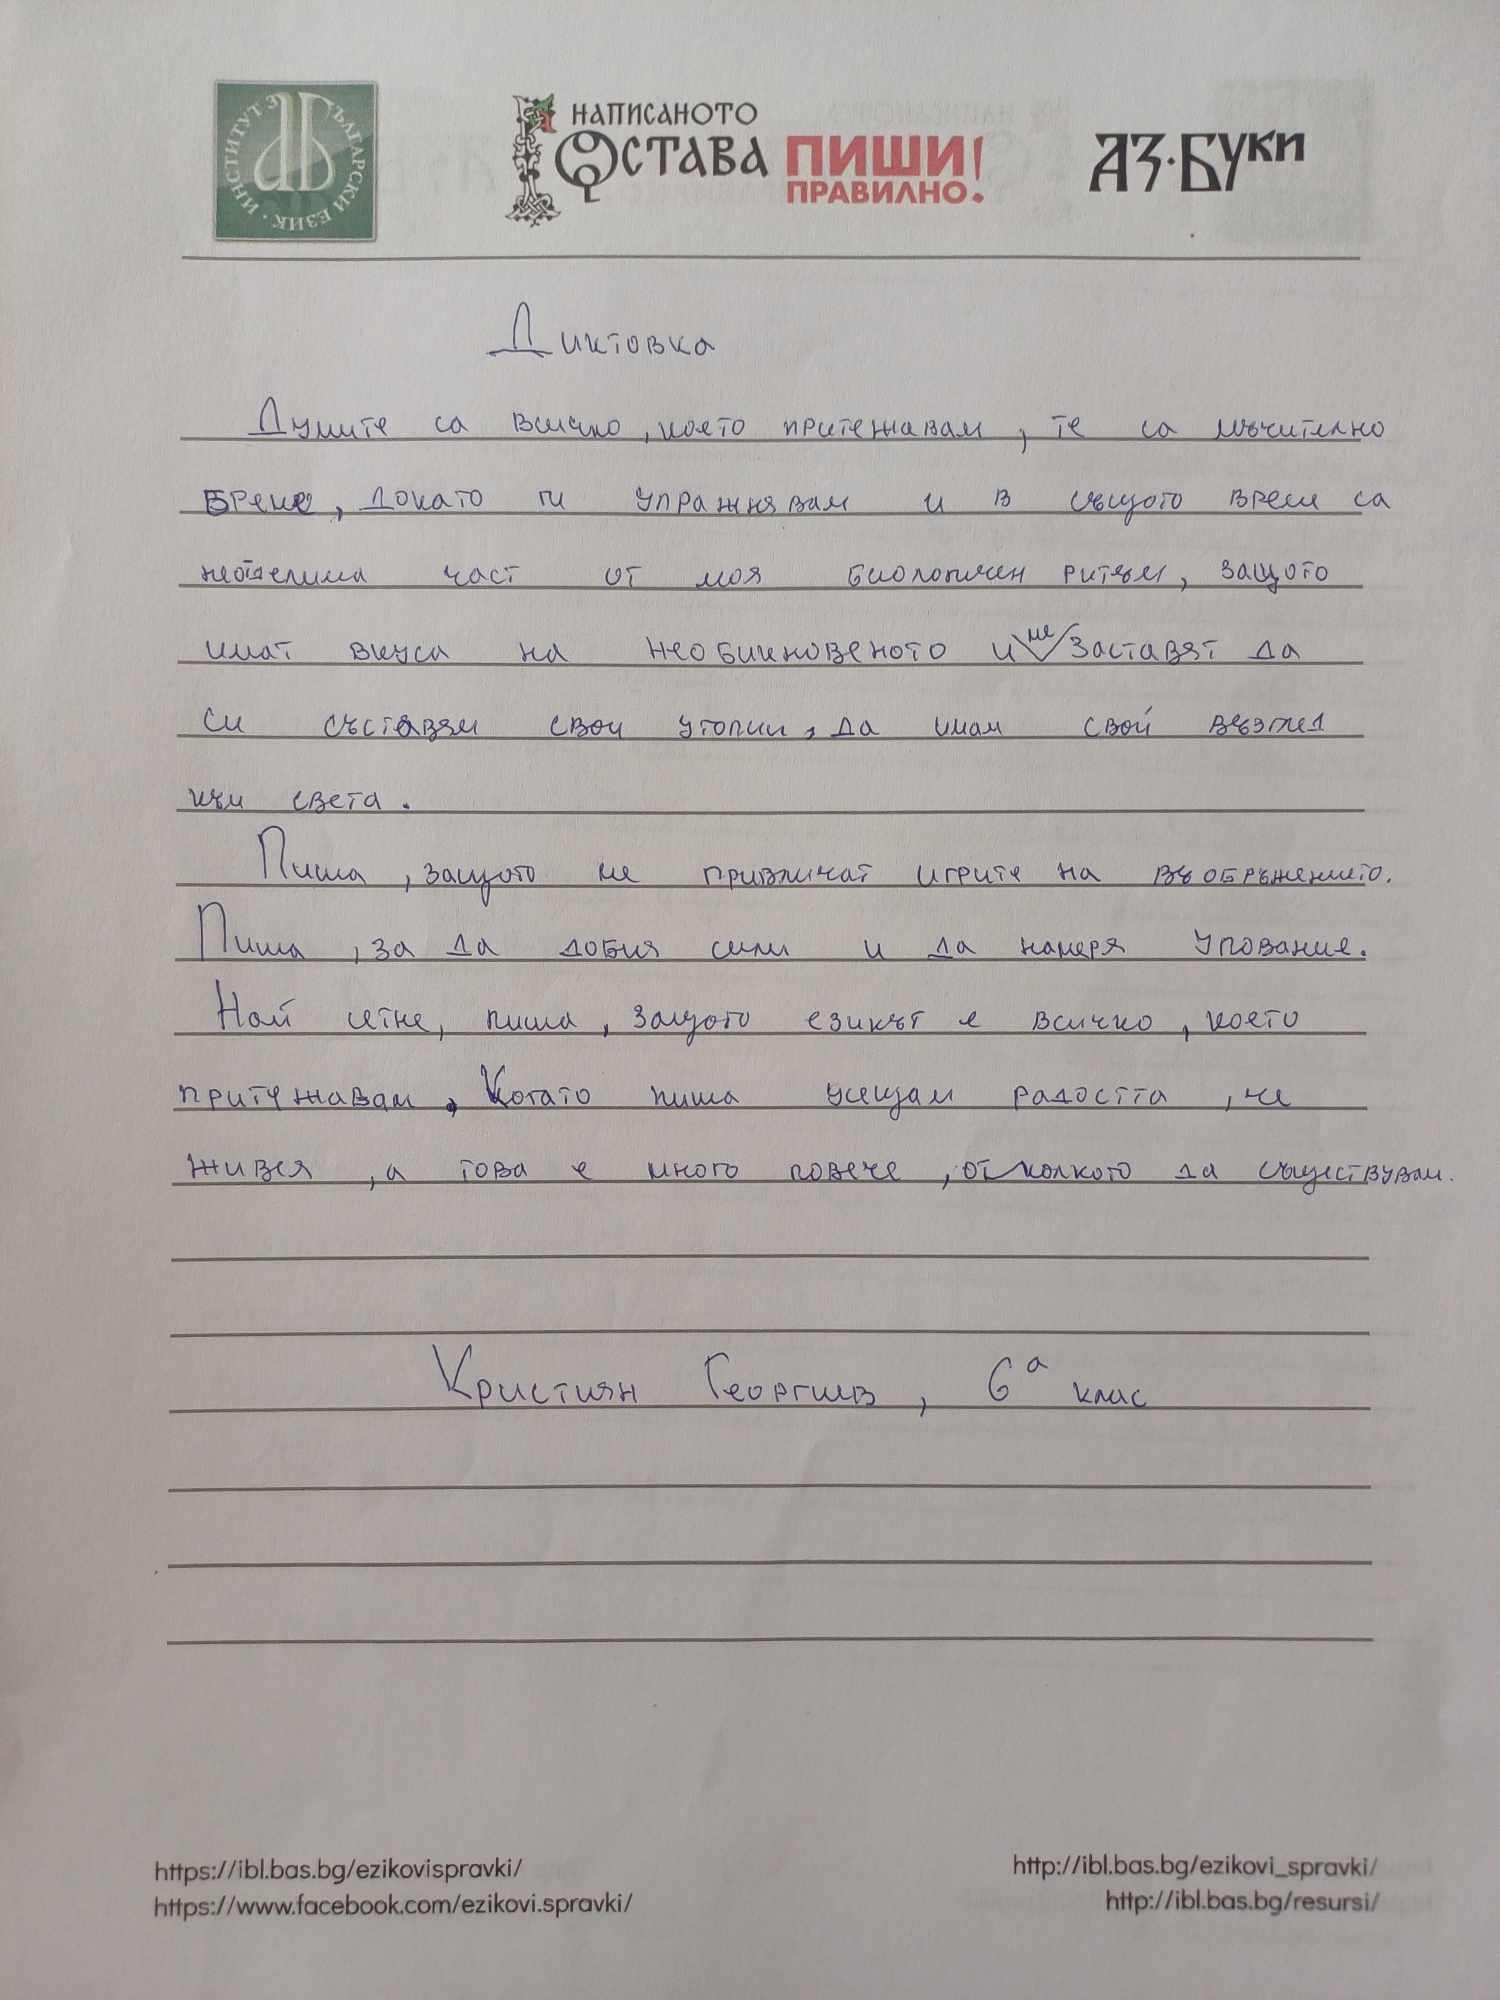 ИНСТИТУТ ЗА БЪЛГАРСКИ ЕЗИК
НАПИСАНОТО
ОСТАВА
ПИШИ
ПРАВИЛНО!
АЗ·БУКИ
Диктовка
Думите са всичко, което притежавам, те са мъчително
бреме, докато ги упражнявам и в същото време са
неотделима част от моя биологичен ритъм, защото
имат вкуса на необикновеното и ме заставят да
си съставям свои утопии, да имам свой възглед
към света.
Пиша, защото ме привличат игрите на въобръжението.
Пиша, за да добия сили и да намеря упование.
Най сетне, пиша, защото езикът е всичко, което
притежавам. Когато пиша усещам радостта, че
живея, а това е много повече, отколкото да съществувам.
Кристиян Георгиев, 6а клас
https://ibl.bas.bg/ezikovispravki/
http://ibl.bas.bg/ezikovi_spravki/
https://www.facebook.com/ezikovi.spravki/
http://ibl.bas.bg/resursi/